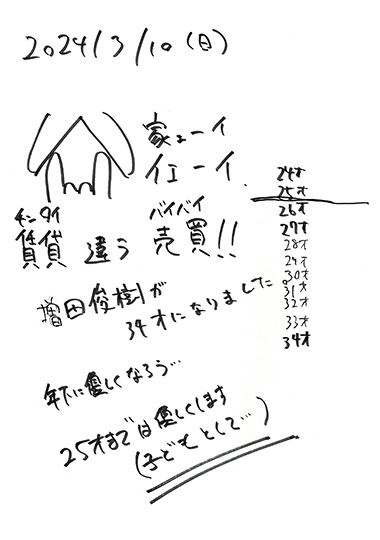 2024/3/10(日)
家ェーイ
イエーイ
チンタイ
賃貸 違う
バイバイ
売買!!
増田俊樹が
34才になりました。
年下に優しくなろう…
25才までは優しくします
(子どもとして…)
24才
25才
26才
27才
28才
29才
30才
31才
32才
33才
34才